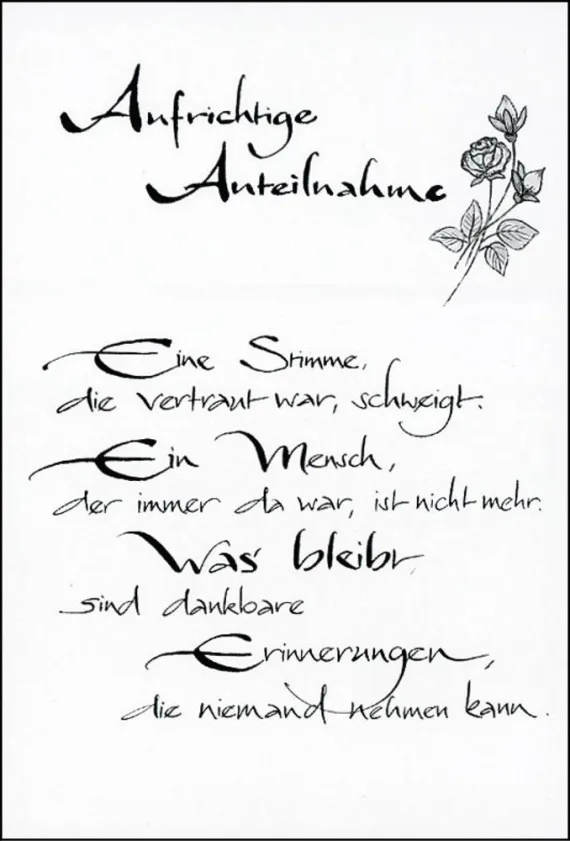 Aufrichtige
Anteilnahme
Eine Stimme,
die vertraut war, schweigt.
Ein Mensch,
der immer da war, ist nicht mehr.
Was bleibt,
sind dankbare
Erinnerungen,
die niemand nehmen kann.